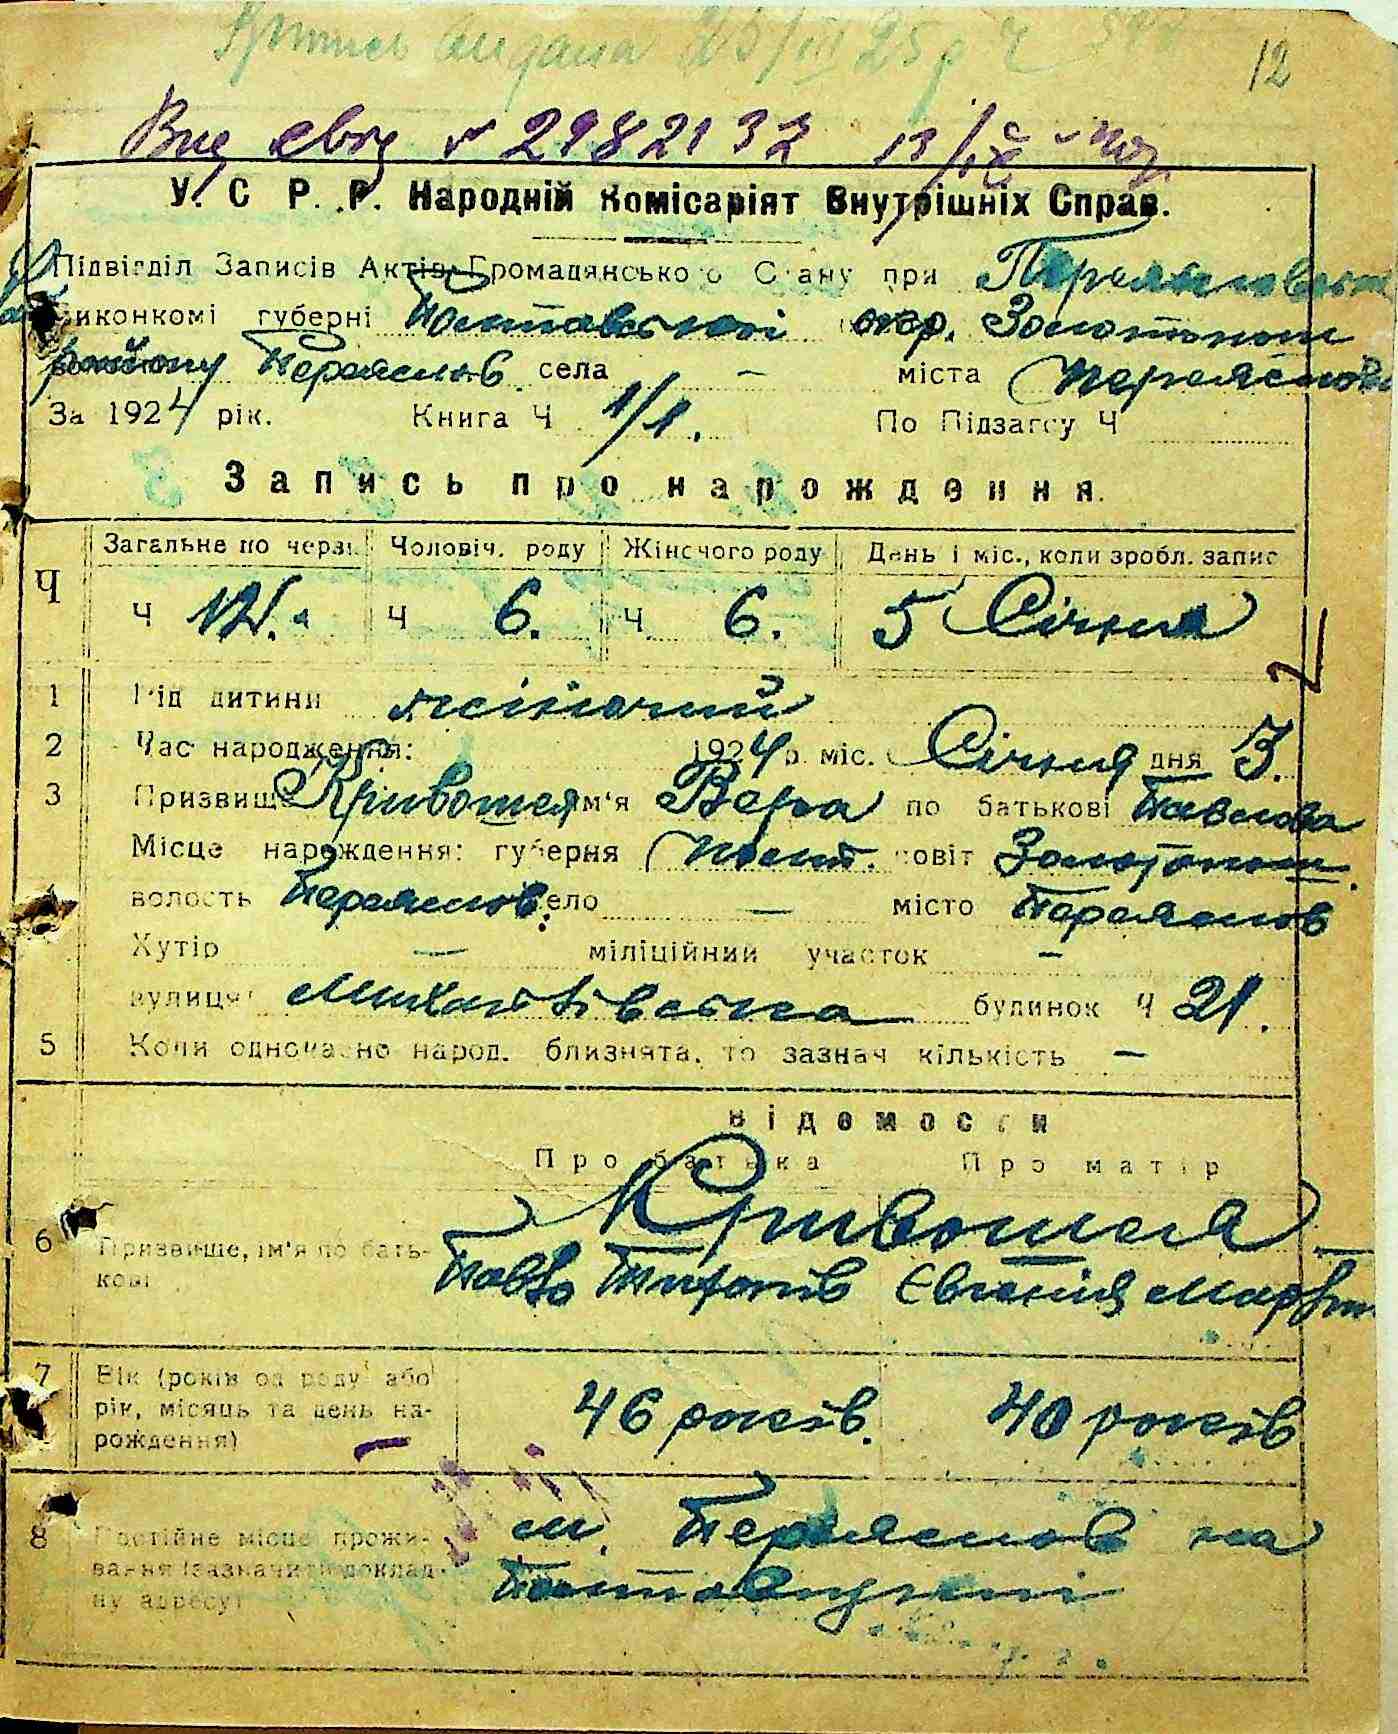 12
№ 2982132
У. С Р. Р. Народній Комісаріят Внутрішніх Справ.
Підвідділ Записів Актів Громадянського Стану при
Виконкомі губерні Полтавської окр. Золотонош
району Переяслов села — міста Переяслов
За 1924 рік. Книга Ч 1/1. По Підзагсу Ч
Запись про нарождення.
Ч Загальне по черзі Чоловіч. роду Жіночого роду День і міс., коли зробл. запис
Ч 12. Ч 6. Ч 6. 5 Січня
1 Рід дитини жіночий
2 Час народження: 1924 р. міс. Січня дня 3.
3 Призвище Кривошея ім'я Вера по батькові Павлова
Місце нарождення: губерня Полт. повіт Золотонош.
волость Переяслов. село — місто Переяслов
Хутір — міліційний участок —
вулиця Михайлівська будинок Ч 21.
5 Коли одночасно народ. близнята, то зазнач кількість —
Відомости
Про батька Про матір
Кривошея
6 Призвище, ім'я по бать-
кові
Павло Титов Євгенія
7 Вік (років од роду або
рік, місяць та день на-
рождення)
46 років. 40 років
8 Постійне місце прожи-
вання (зазначити доклад-
ну адресу)
м. Переяслов на
Полтавщині